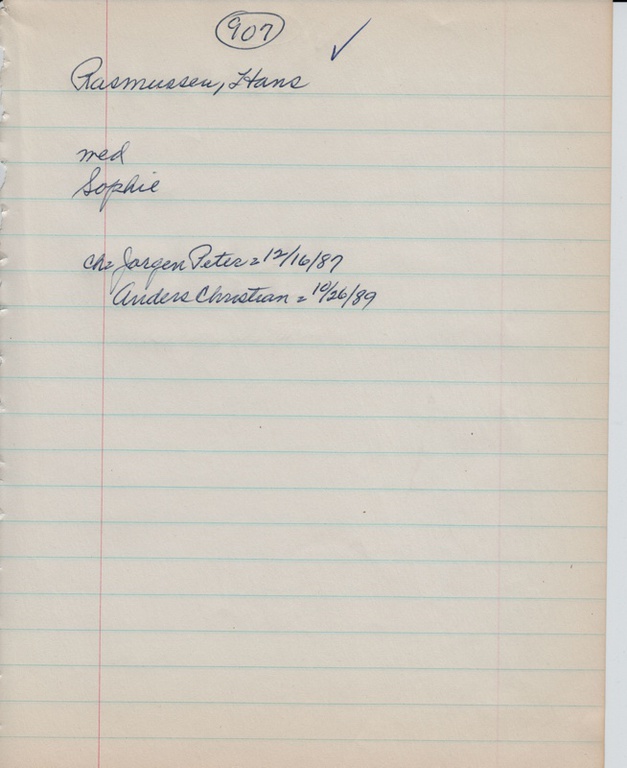 907 ✓
Rasmussen, Hans
med
Sophie
ch= Jorgen Peter = 12/16/87
Anders Christian = 10/26/89